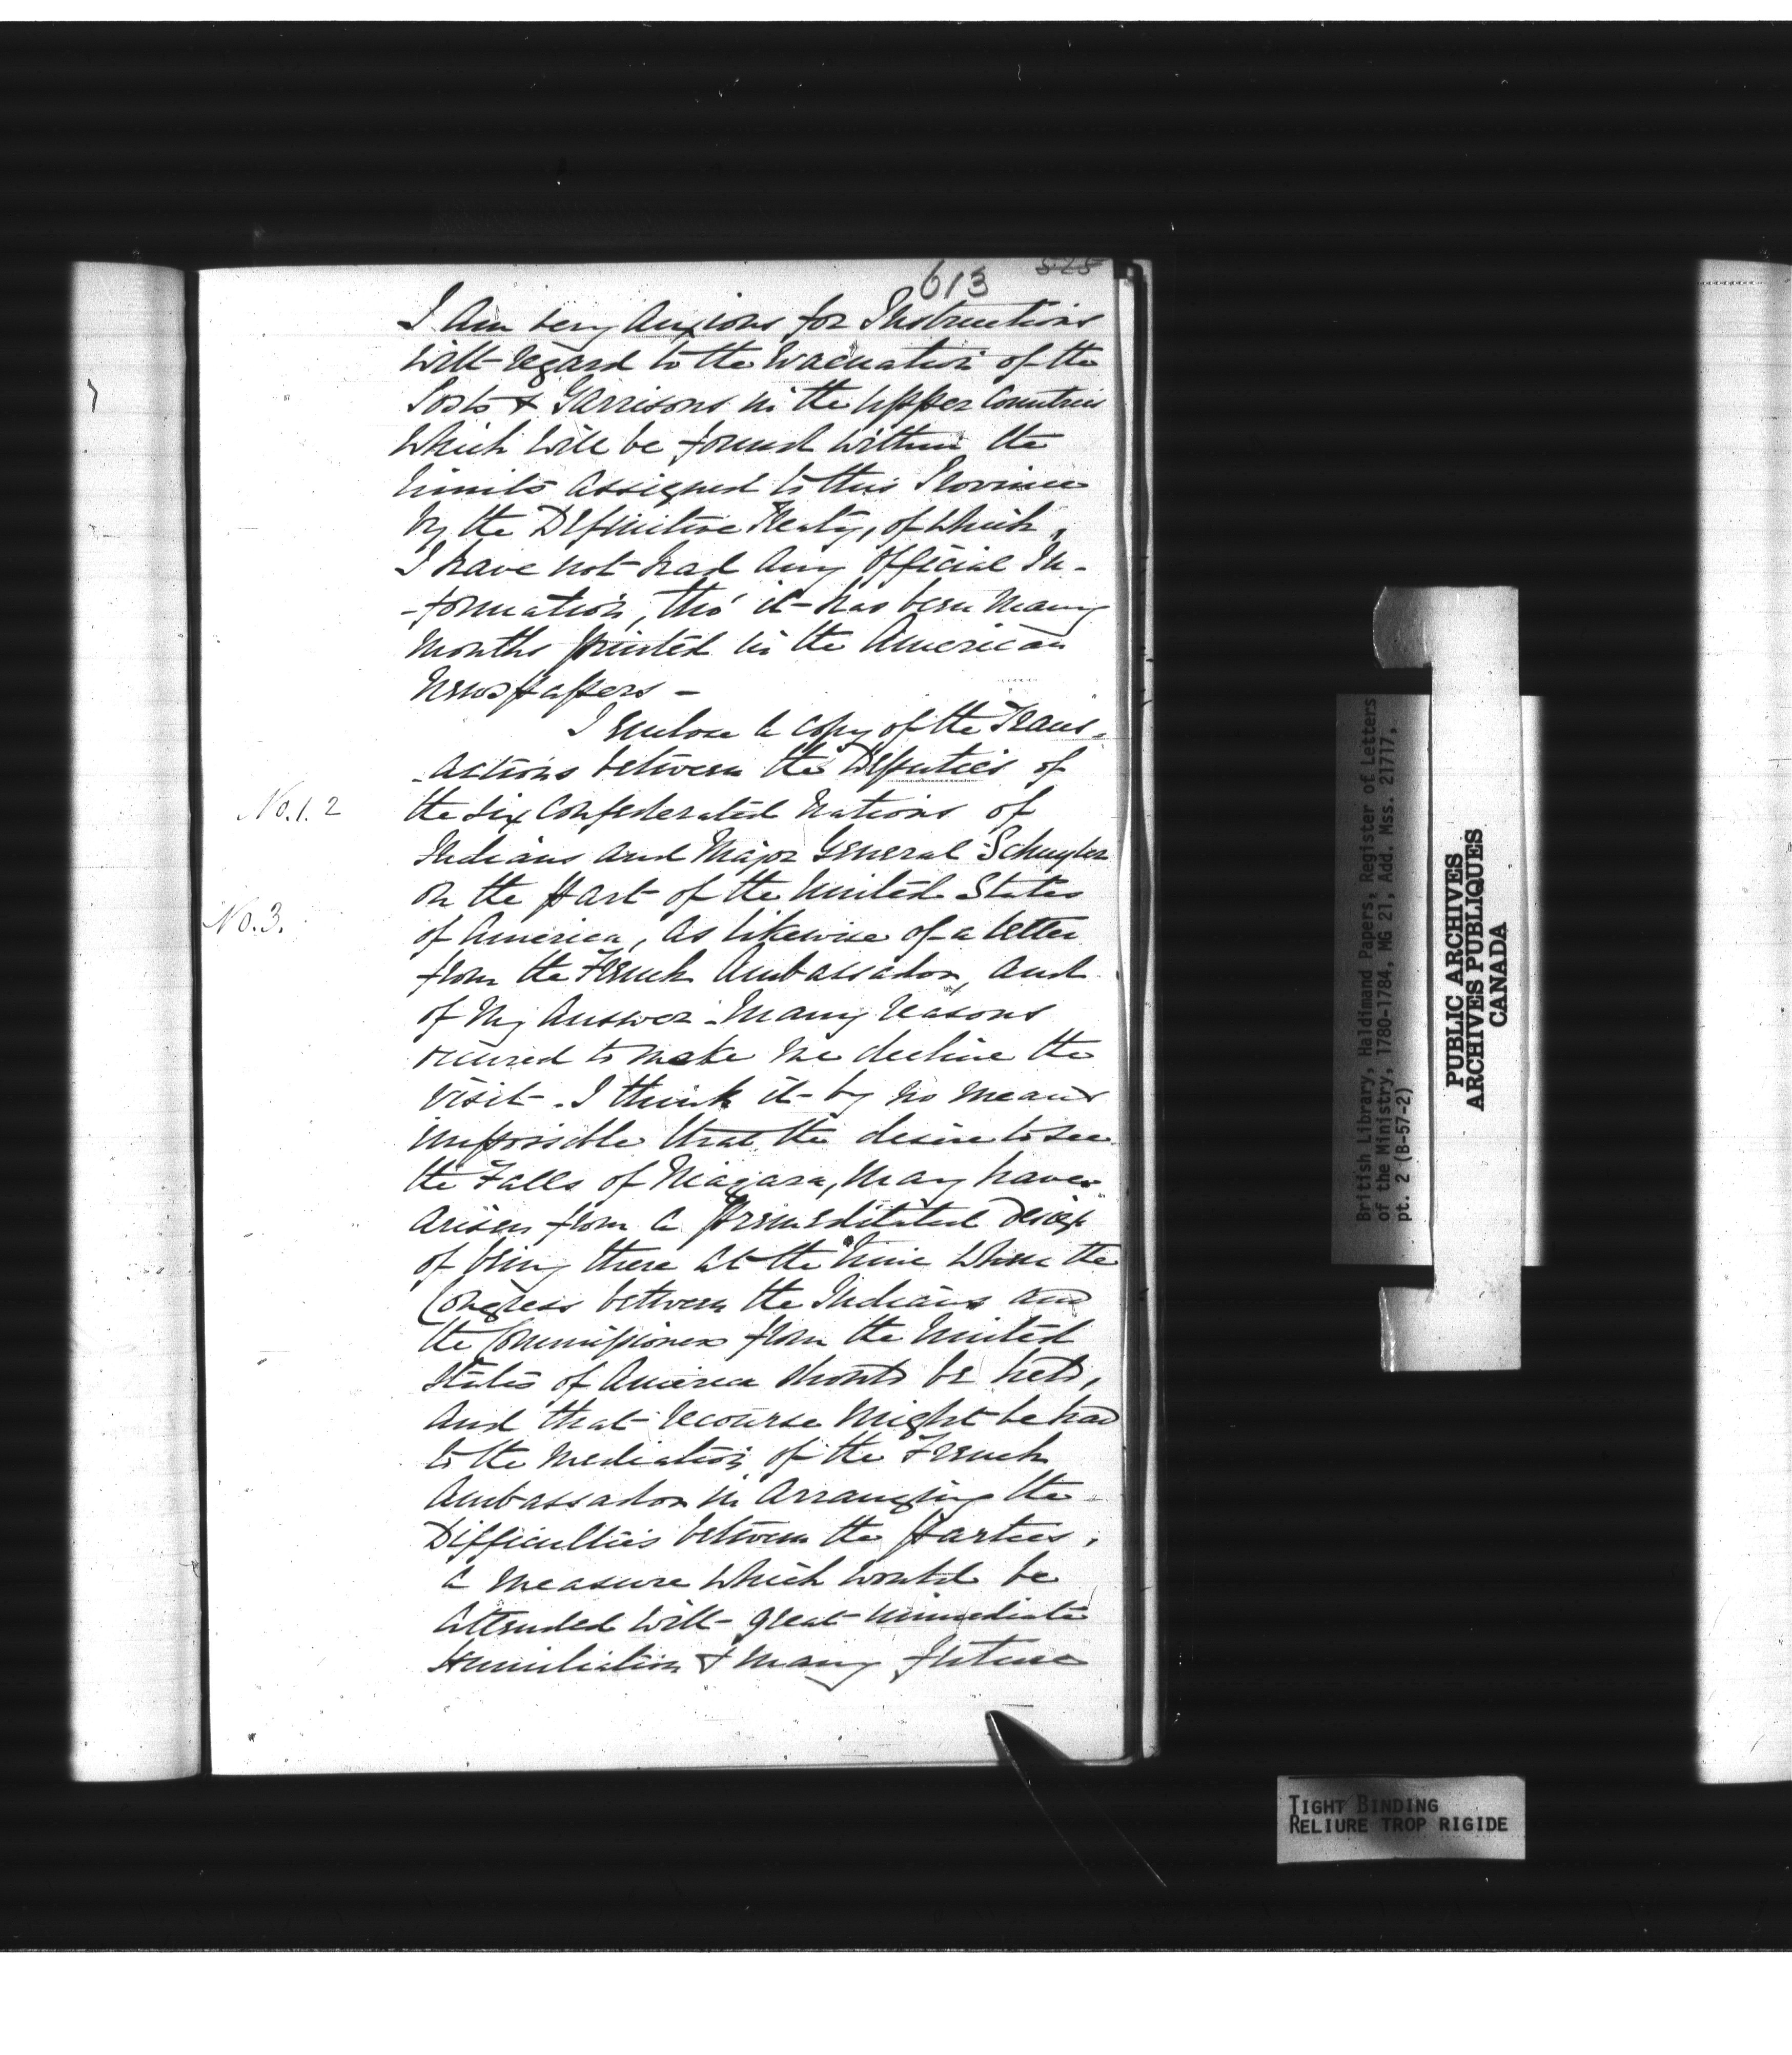 613
525
I Am very Anxious for Instructions
with regard to the Evacuation of the
Posts & Garrisons in the Upper Countries
Which Will be found within the
Limits Assigned to this Province
by the Definitive Treaty, of which,
I have not had Any Official In-
-formation, tho' it has been Many
Months printed in the American
Newspapers -
I enclose a Copy of the Trans-
-actions between the Deputies of
No. 1. 2
the Six Confederated Nations of
Indians And Major General Schuyler
on the part of the United States
No. 3.
of America, As likewise of a letter
from the French Ambassador, And
of My Answer - Many reasons
occured to make me decline the
Visit - I think it by no means
impossible that the desire to see
the Falls of Niagara, May have
Arisen from a premeditated design
of being there At the time When the
Congress between the Indians and
the Commissioners from the United
States of America should be held,
And that recourse Might be had
to the Mediation of the French
Ambassador in Arranging the
Difficulties between the parties,
a Measure Which would be
Attended with great immediate
Humiliation & many future
British Library, Haldimand Papers, Register of Letters
of the Ministry, 1780-1784, MG 21, Add. Mss. 21717,
pt. 2 (B-57-2)
PUBLIC ARCHIVES
ARCHIVES PUBLIQUES
CANADA
TIGHT BINDING
RELIURE TROP RIGIDE